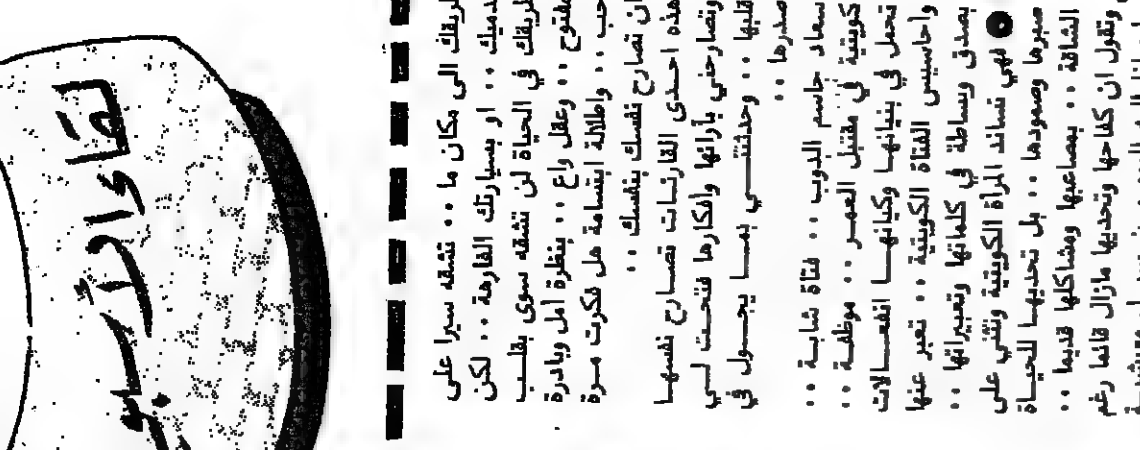 طريقك الى مكان ما .. تشقه سيرا على
قدميك .. او بسيارتك الفارهة .. لكن
طريقك في الحياة لن تشقه سوى بقلب
مفتوح .. وعقل واع .. بنظرة امل وبادرة
حب .. واطلالة ابتسامة هل فكرت مرة
ان تصارح نفسك بنفسك ..
هذه احدى القارئات تصارح نفسها
وتصارحني بآرائها وافكارها فتحت لي
قلبها .. وحدثتني بما يجول في
صدرها ..
سعاد جاسم الدوب .. فتاة شابة ..
كويتية في مقتبل العمر .. موظفة ..
تحمل في بنيانها وكيانها انفعالات
واحاسيس الفتاة الكويتية .. تعبر عنها
بصدق وبساطة في كلماتها وتعبيراتها ..
● فهي تساند المرأة الكويتية وتثني على
صبرها وصمودها .. بل تحديها للحياة
الشاقة .. بمصاعبها ومشاكلها قديما ..
وتقول ان كفاحها وتحديها مازال قائما رغم